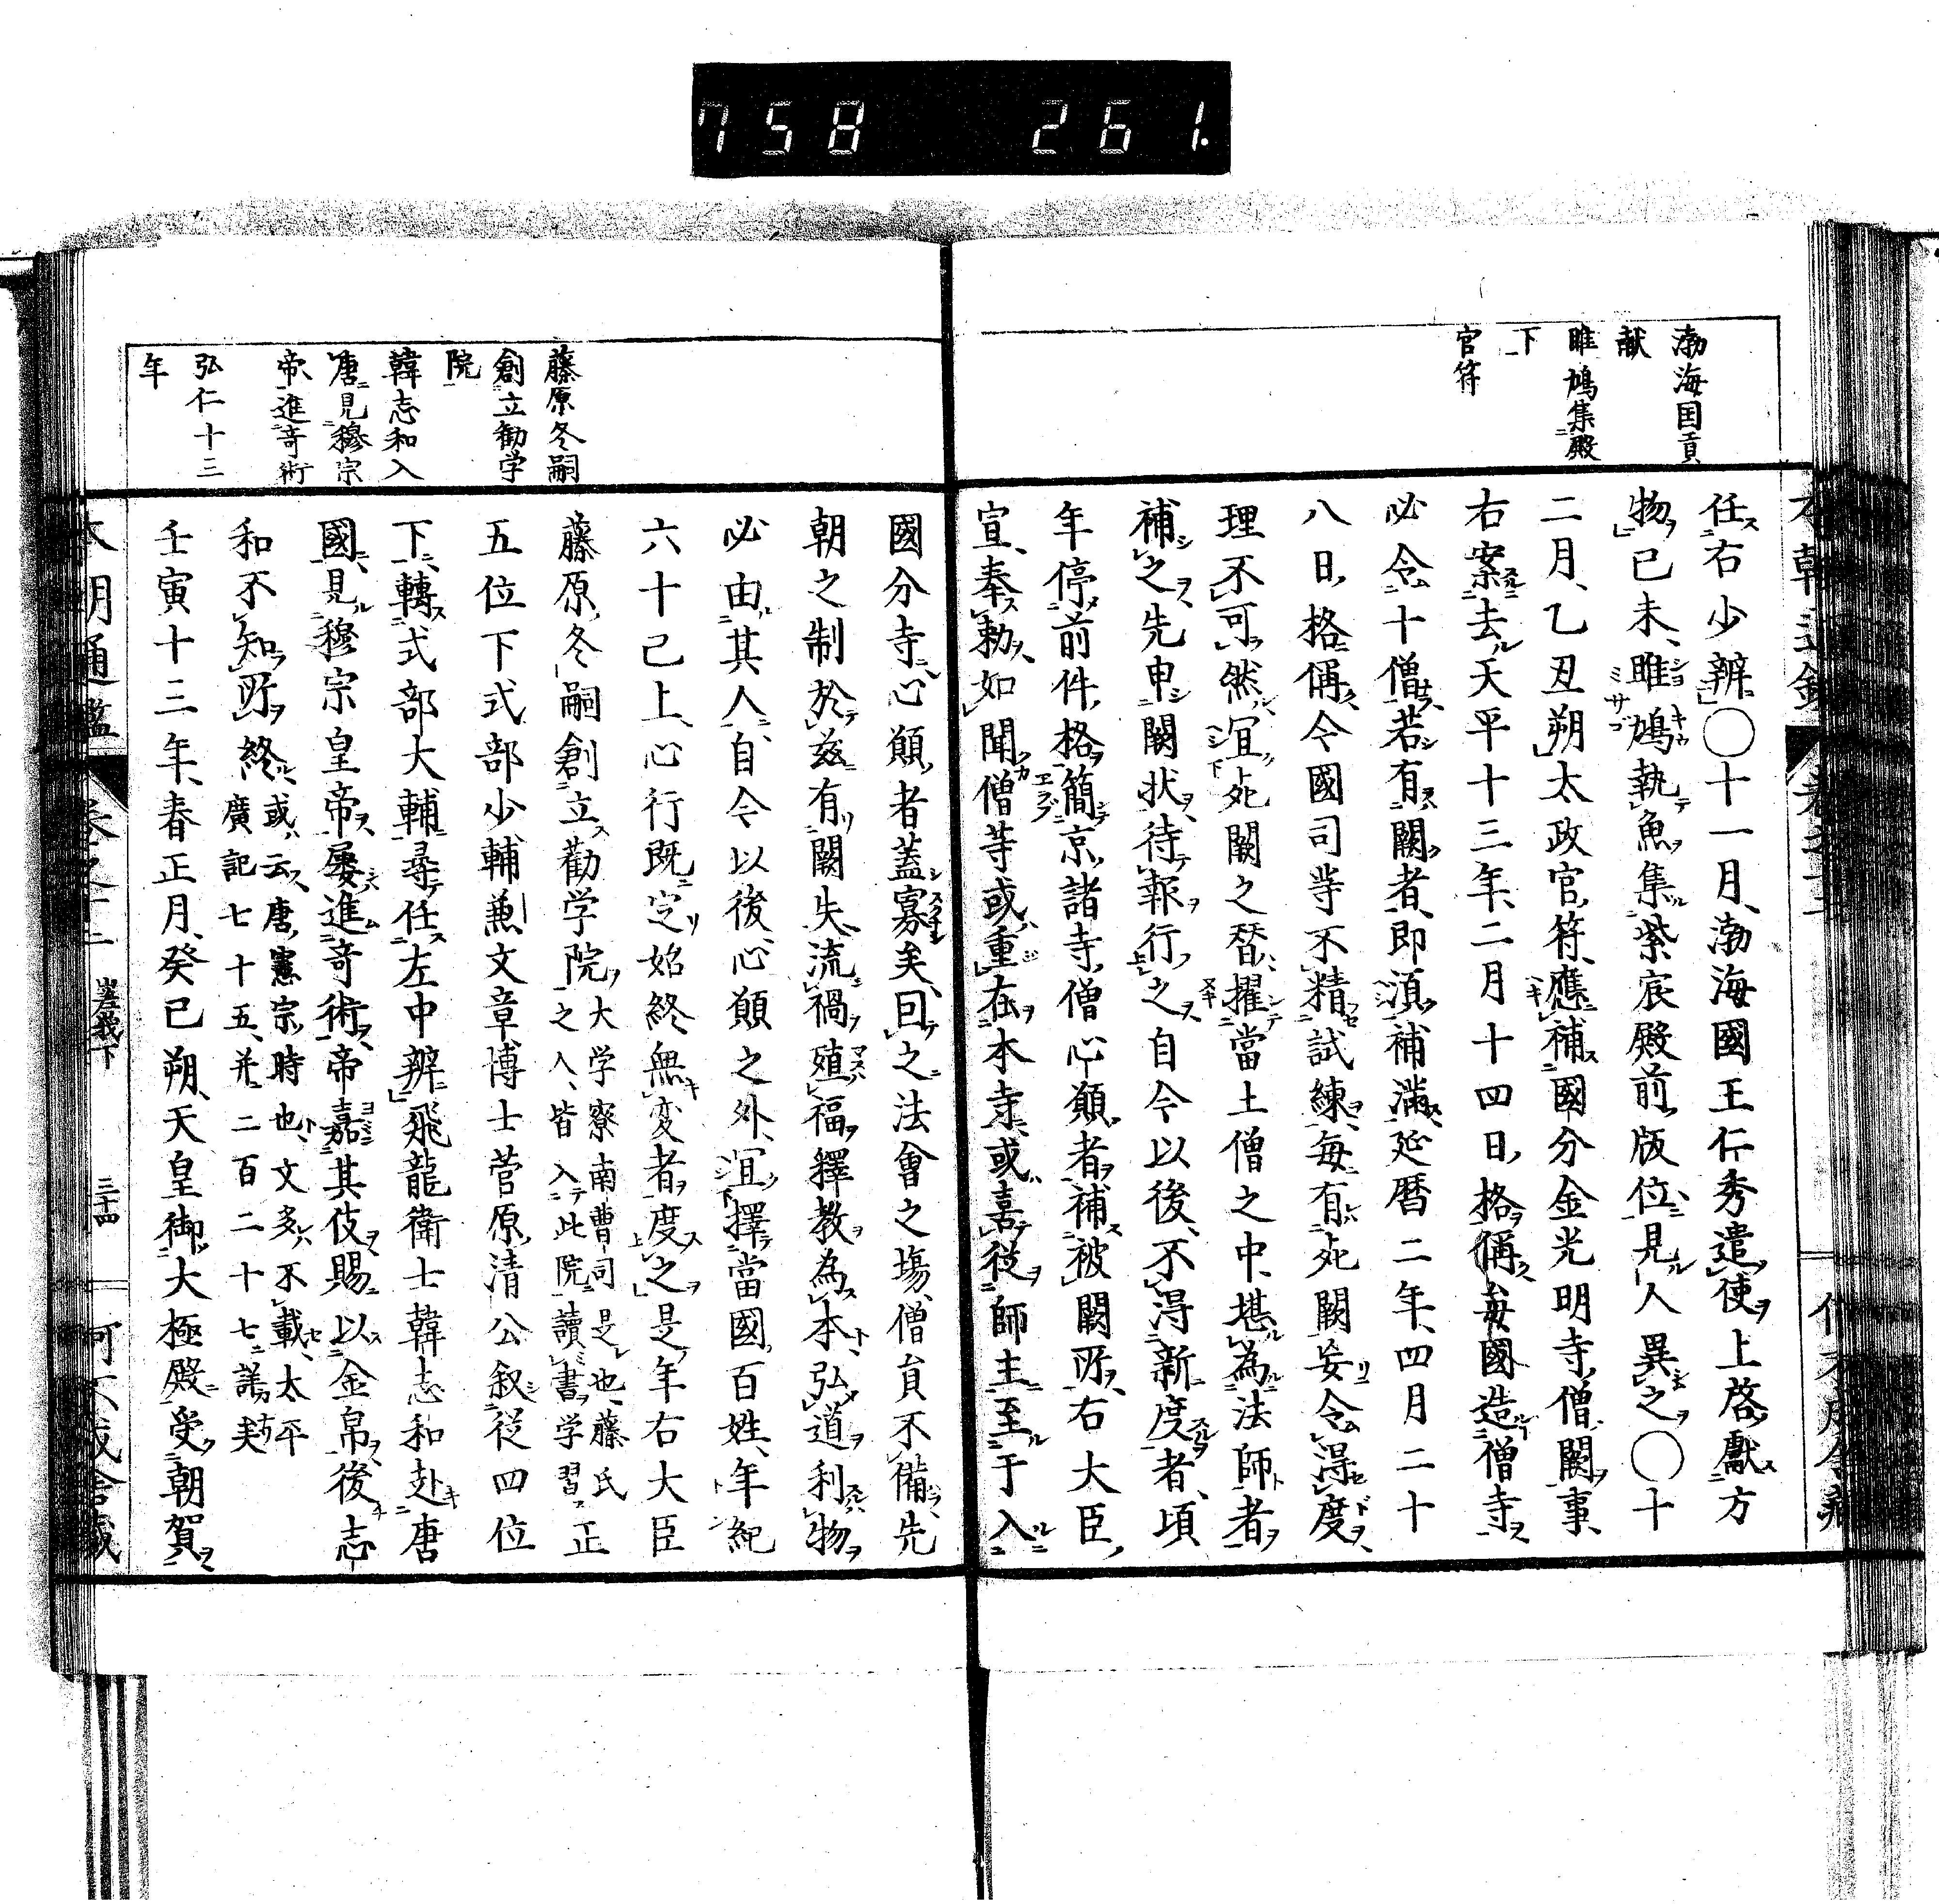 758 261.
渤海国貢
献
雎鳩集殿
下
官符
任右少辨○十一月渤海國王仁秀遣使上啓獻方
物己未雎鳩執魚集紫宸殿前版位見人異之○十
二月乙丑朔太政官符應補國分金光明寺僧闕事
右案去天平十三年二月十四日格稱毎國造僧寺
必令十僧若有闕者即須補滿延暦二年四月二十
八日格稱令國司等不精試練毎有死闕妄令得度
理不可然宜死闕之替擢當土僧之中堪為法師者
補之先申闕状待報行之自今以後不得新度者頃
年停前件格簡京諸寺僧心願者補被闕所右大臣
宣奉勅如聞僧等或重在本寺或嘉從師主至于入
國分寺心願者蓋寡矣囙之法會之塲僧員不備先
朝之制於茲有闕失流禍殖福釋教為本弘道利物
必由其人自今以後心願之外宜擇當國百姓年紀
六十已上心行既定始終無変者度之是年右大臣
藤原冬嗣創立勸学院大学寮南曹司是也藤氏
之人皆入此院讀書学習正
五位下式部少輔兼文章博士菅原清公叙從四位
下轉式部大輔尋任左中辨飛龍衛士韓志和赴唐
國見穆宗皇帝屢進竒術帝嘉其伎賜以金帛後志
和不知所終或云唐憲宗時也文多不載太平
廣記七十五并二百二十七詳矣
壬寅十三年春正月癸巳朔天皇御大極殿受朝賀
藤原冬嗣
創立勧学
院
韓志和入
唐見穆宗
帝進竒術
弘仁十三
年
嵯峨下
三十四